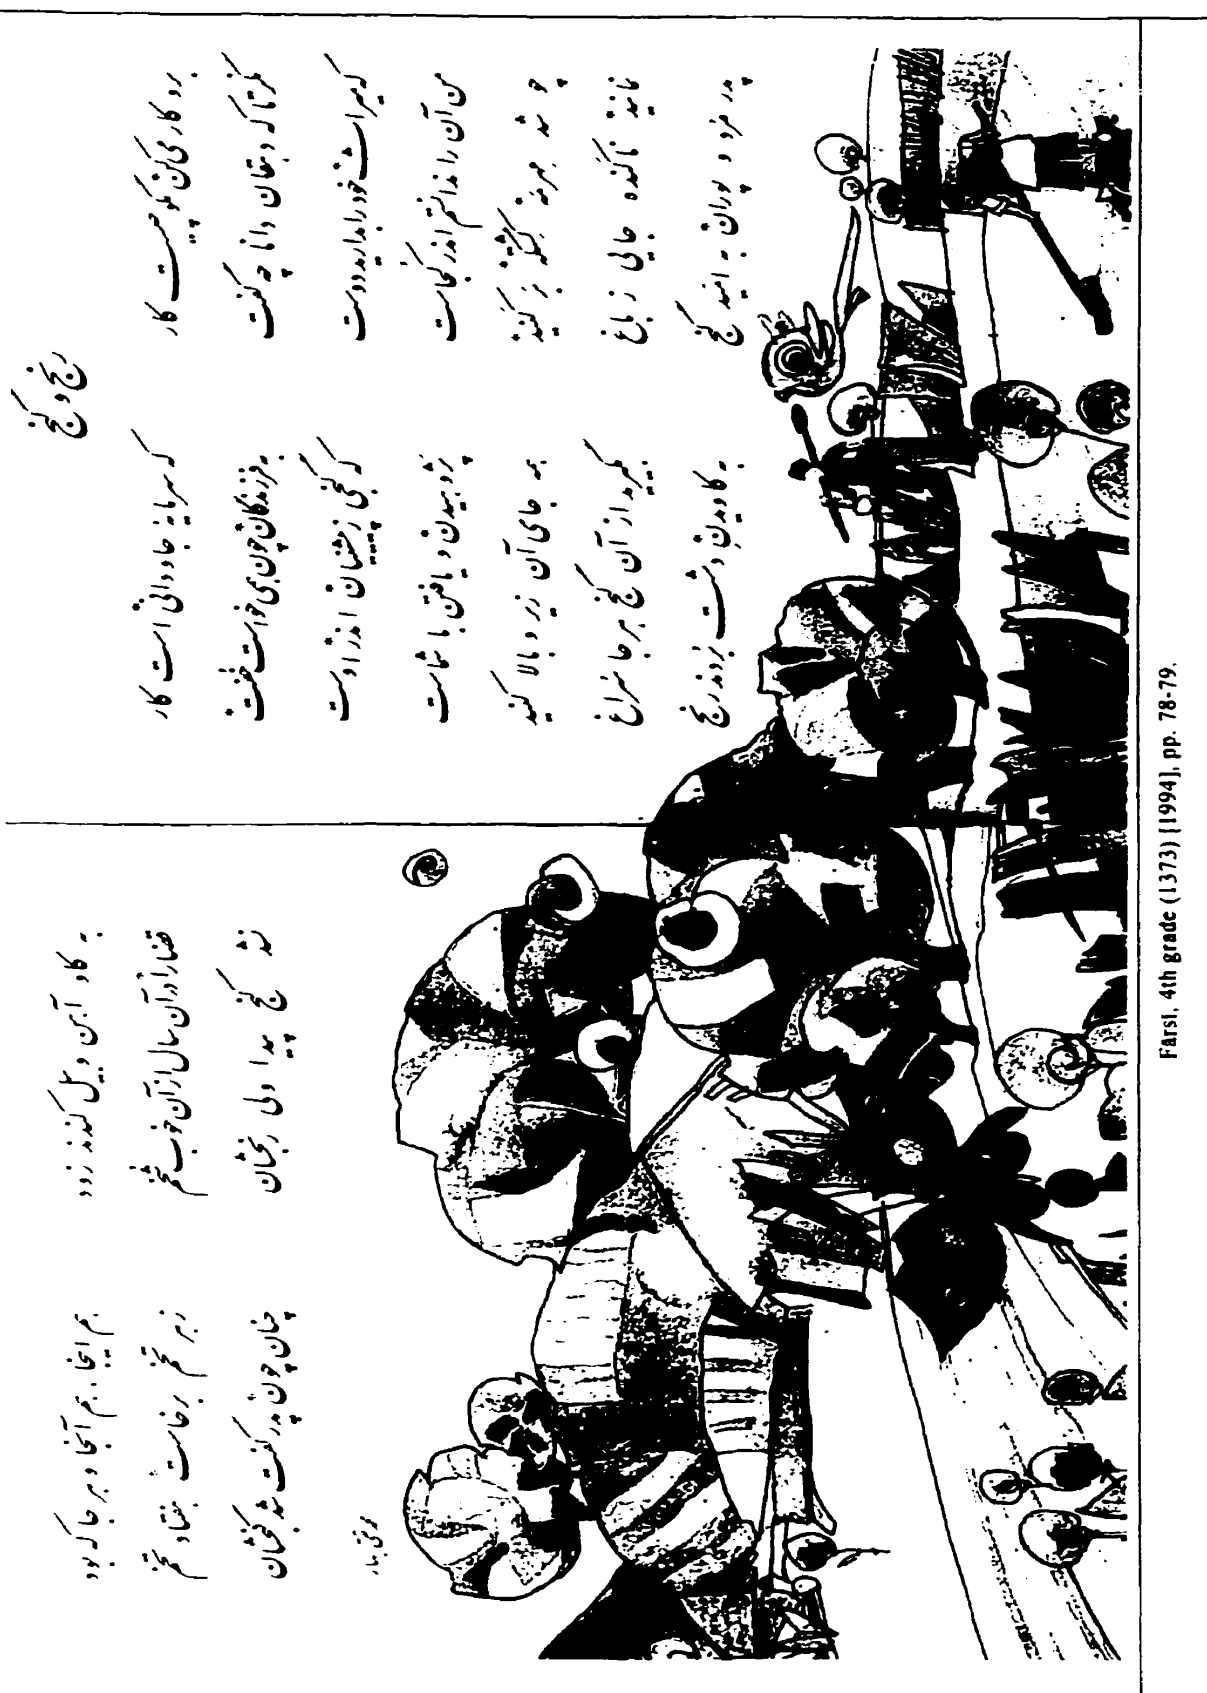 رنج و گنج
برو کار می‌کن مگو چیست کار که سرمایهٔ جاودانی است کار
نگر تا که دهقان دانا چه گفت به فرزندگان چون همی خواست خفت*
که میراث خود را بدارید دوست که گنجی ز پیشینیان اندر اوست
من آن را ندانستم اندر کجاست پژوهیدن و یافتن با شماست
چو شد مهرمه کشتگه بر کنید همه جای آن زیر و بالا کنید
نمانید ناکنده جایی ز باغ بگیرید از آن گنج هر جا سراغ
پدر مُرد و پوران به امید گنج به کاویدن دشت بردند رنج
به گاو آهن و بیل کندند زود هم اینجا، هم آنجا و هر جا که بود
قضا را در آن سال از آن خوب شخم ز هر تخم برخاست هفتاد تخم
نشد گنج پیدا ولی رنجشان چنان چون پدر گفت شد گنجشان
محمد تقی بهار
Farsi, 4th grade (1373) [1994], pp. 78-79.